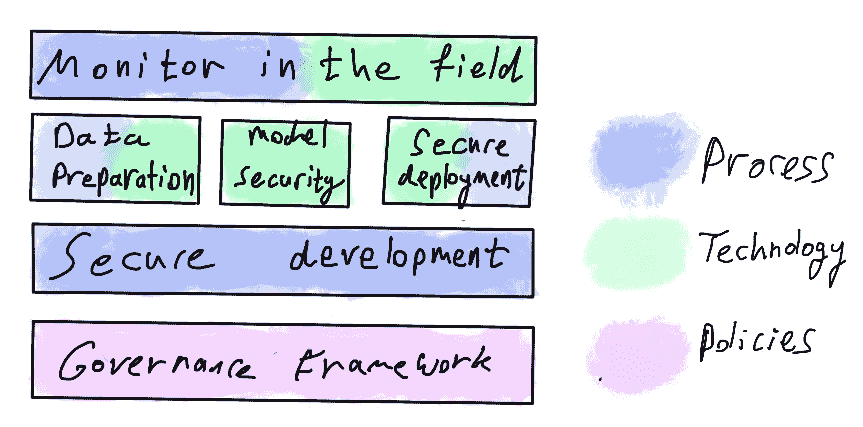 Monitor in the field
Data
Preparation
model
security
Secure
deployment
Secure development
Governance Framework
Process
Technology
Policies